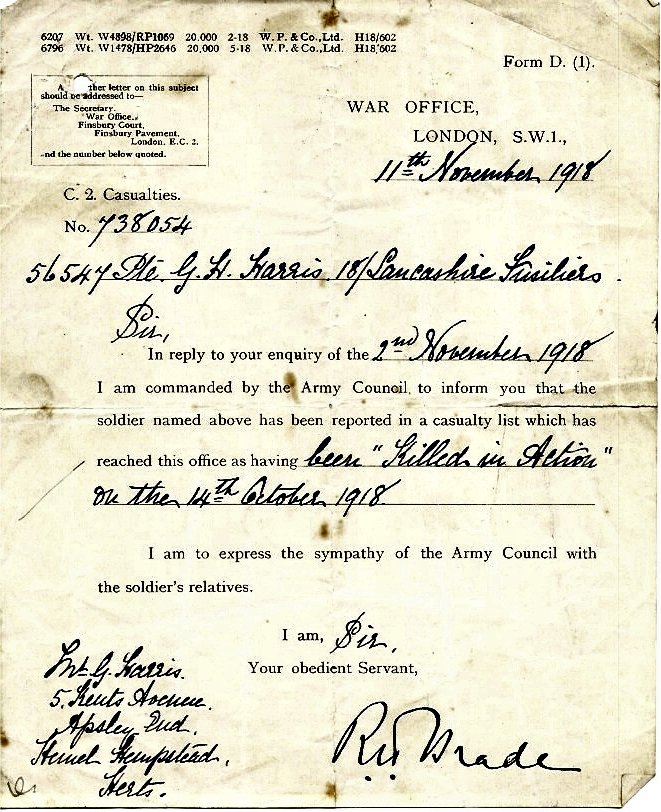 6207 Wt. W4898/RP1069 20,000 2-18 W. P. & Co., Ltd. H18/602
6796 Wt. W1478/HP2646 20,000 5-18 W. P. & Co., Ltd. H18/602
Form D. (1).
A ther letter on this subject
should be addressed to—
The Secretary,
War Office,
Finsbury Court,
Finsbury Pavement,
London, E.C. 2.
nd the number below quoted.
WAR OFFICE,
LONDON, S.W.1.,
11th November 1918
C. 2. Casualties.
No. 738054
56547 Pte. G. H. Harris. 18/Lancashire Fusiliers.
Sir,
In reply to your enquiry of the 2nd November 1918
I am commanded by the Army Council to inform you that the
soldier named above has been reported in a casualty list which has
reached this office as having been "Killed in Action"
on the 14th October 1918
I am to express the sympathy of the Army Council with
the soldier's relatives.
I am, Sir,
Your obedient Servant,
Mr G. Harris.
5. Kents Avenue.
Apsley End.
Hemel Hempstead,
Herts.